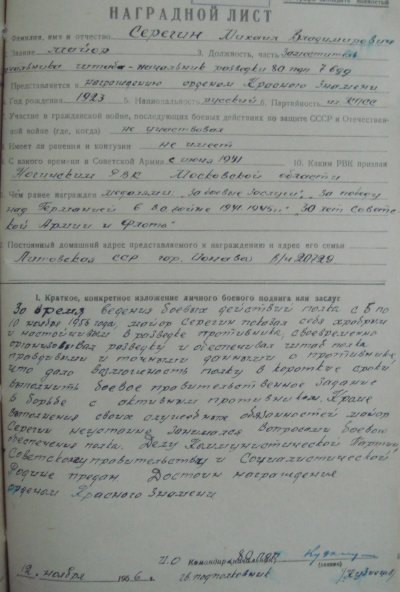 НАГРАДНОЙ ЛИСТ
Фамилия, имя и отчество Серегин Михаил Владимирович
Звание майор 3. Должность, часть Заместитель
начальника штаба - начальник разведки 80 пдп 7 вдд
Представляется к награждению орденом Красного Знамени
Год рождения 1923 5. Национальность русский 6. Партийность чл. КПСС
Участие в гражданской войне, последующих боевых действиях по защите СССР и Отечествен-
ной войне (где, когда) не участвовал
Имеет ли ранения и контузии не имеет
С какого времени в Советской Армии с июня 1941 10. Каким РВК призван
Ногинским РВК Московской области
Чем ранее награжден медалями "За боевые заслуги", "За победу
над Германией в В.О.войне 1941-1945гг" "30 лет Советс
кой Армии и Флота"
Постоянный домашний адрес представляемого к награждению и адрес его семьи
Литовская ССР гор. Ионава в/ч 20729
I. Краткое, конкретное изложение личного боевого подвига или заслуг
За время ведения боевых действий полка с 5 по
10 ноября 1956 года, майор Серегин показал себя храбрым
и настойчивым в разведке противника, своевременно
организовывал разведку и обеспечивал штаб полка
правдивыми и точными данными о противнике,
что дало возможность полку в короткие сроки
выполнить боевое правительственное задание
в борьбе с активным противником. Кроме
выполнения своих служебных обязанностей майор
Серегин неустанно занимался вопросами боевого
обеспечения полка. Делу Коммунистической Партии,
Советскому правительству и Социалистической
Родине предан Достоин награждения
орденом Красного Знамени
И.О Командир 80 пдп
гв подполковник
12 ноября 1956 г.